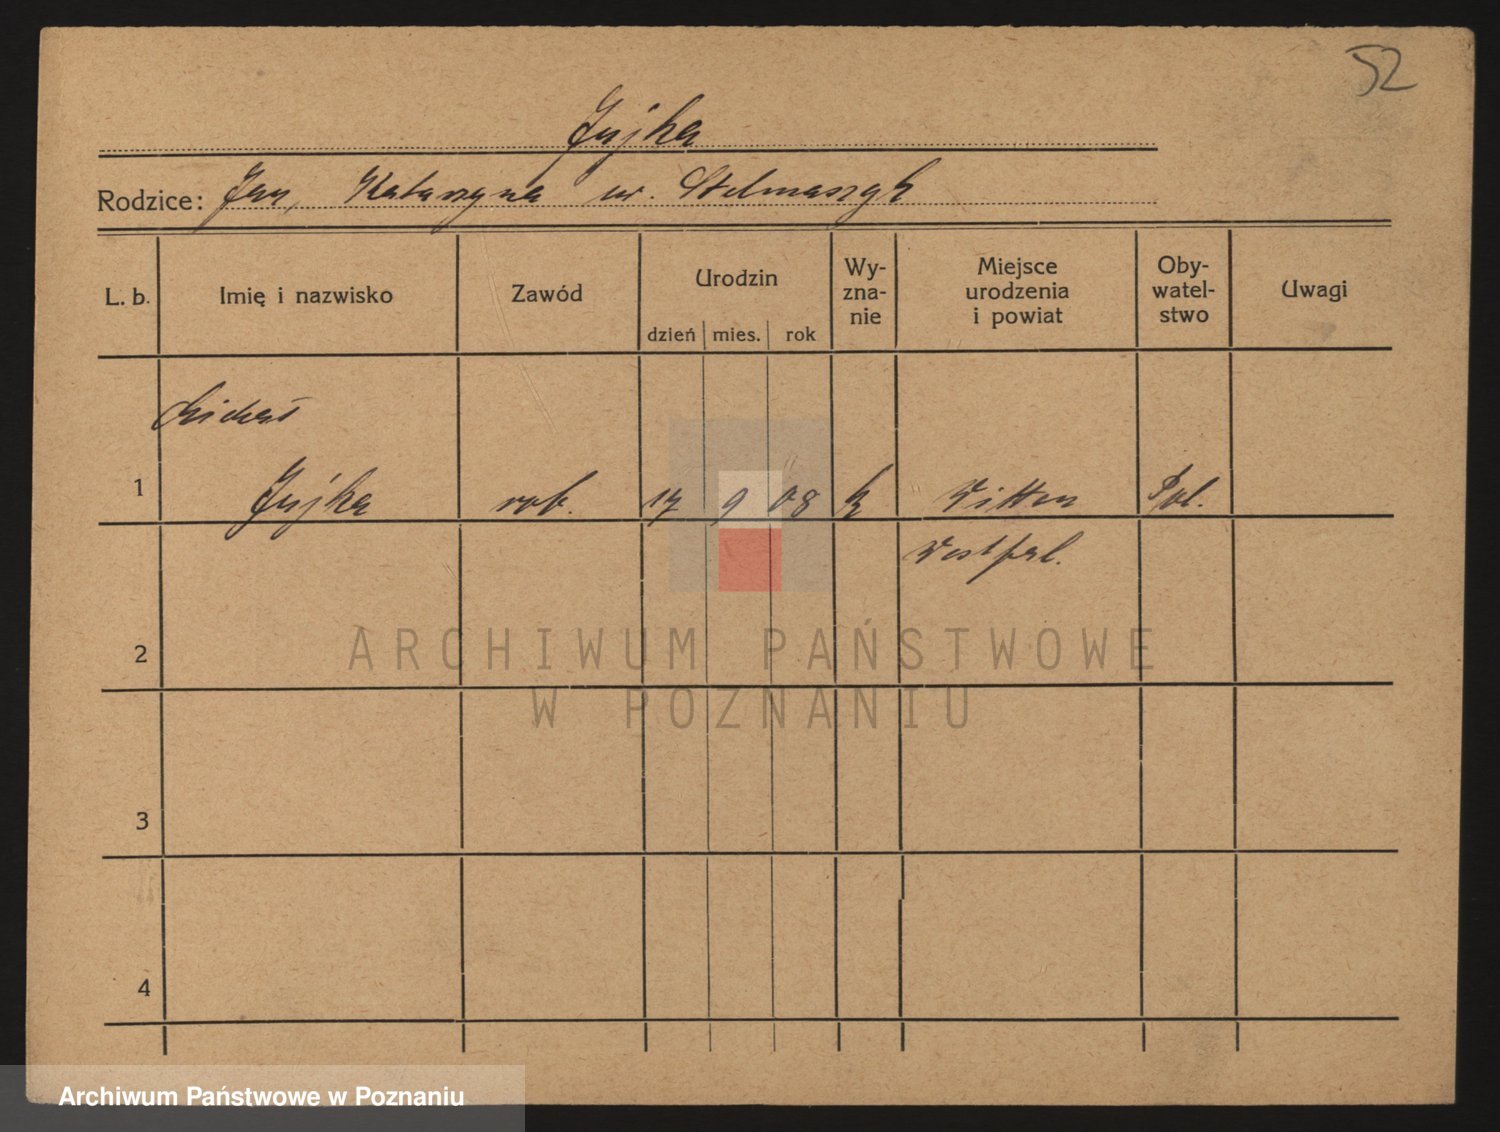 52
Jujka
Rodzice: Jan, Katarzyna ur. Stelmaszyk
L. b. Imię i nazwisko Zawód Urodzin dzień mies. rok Wy-zna-nie Miejsce urodzenia i powiat Oby-watel-stwo Uwagi
1 Jujka rob. 17 9 08 k Witten Pol.
Westfal.
2
3
4
ARCHIWUM PAŃSTWOWE
W POZNANIU
Archiwum Państwowe w Poznaniu